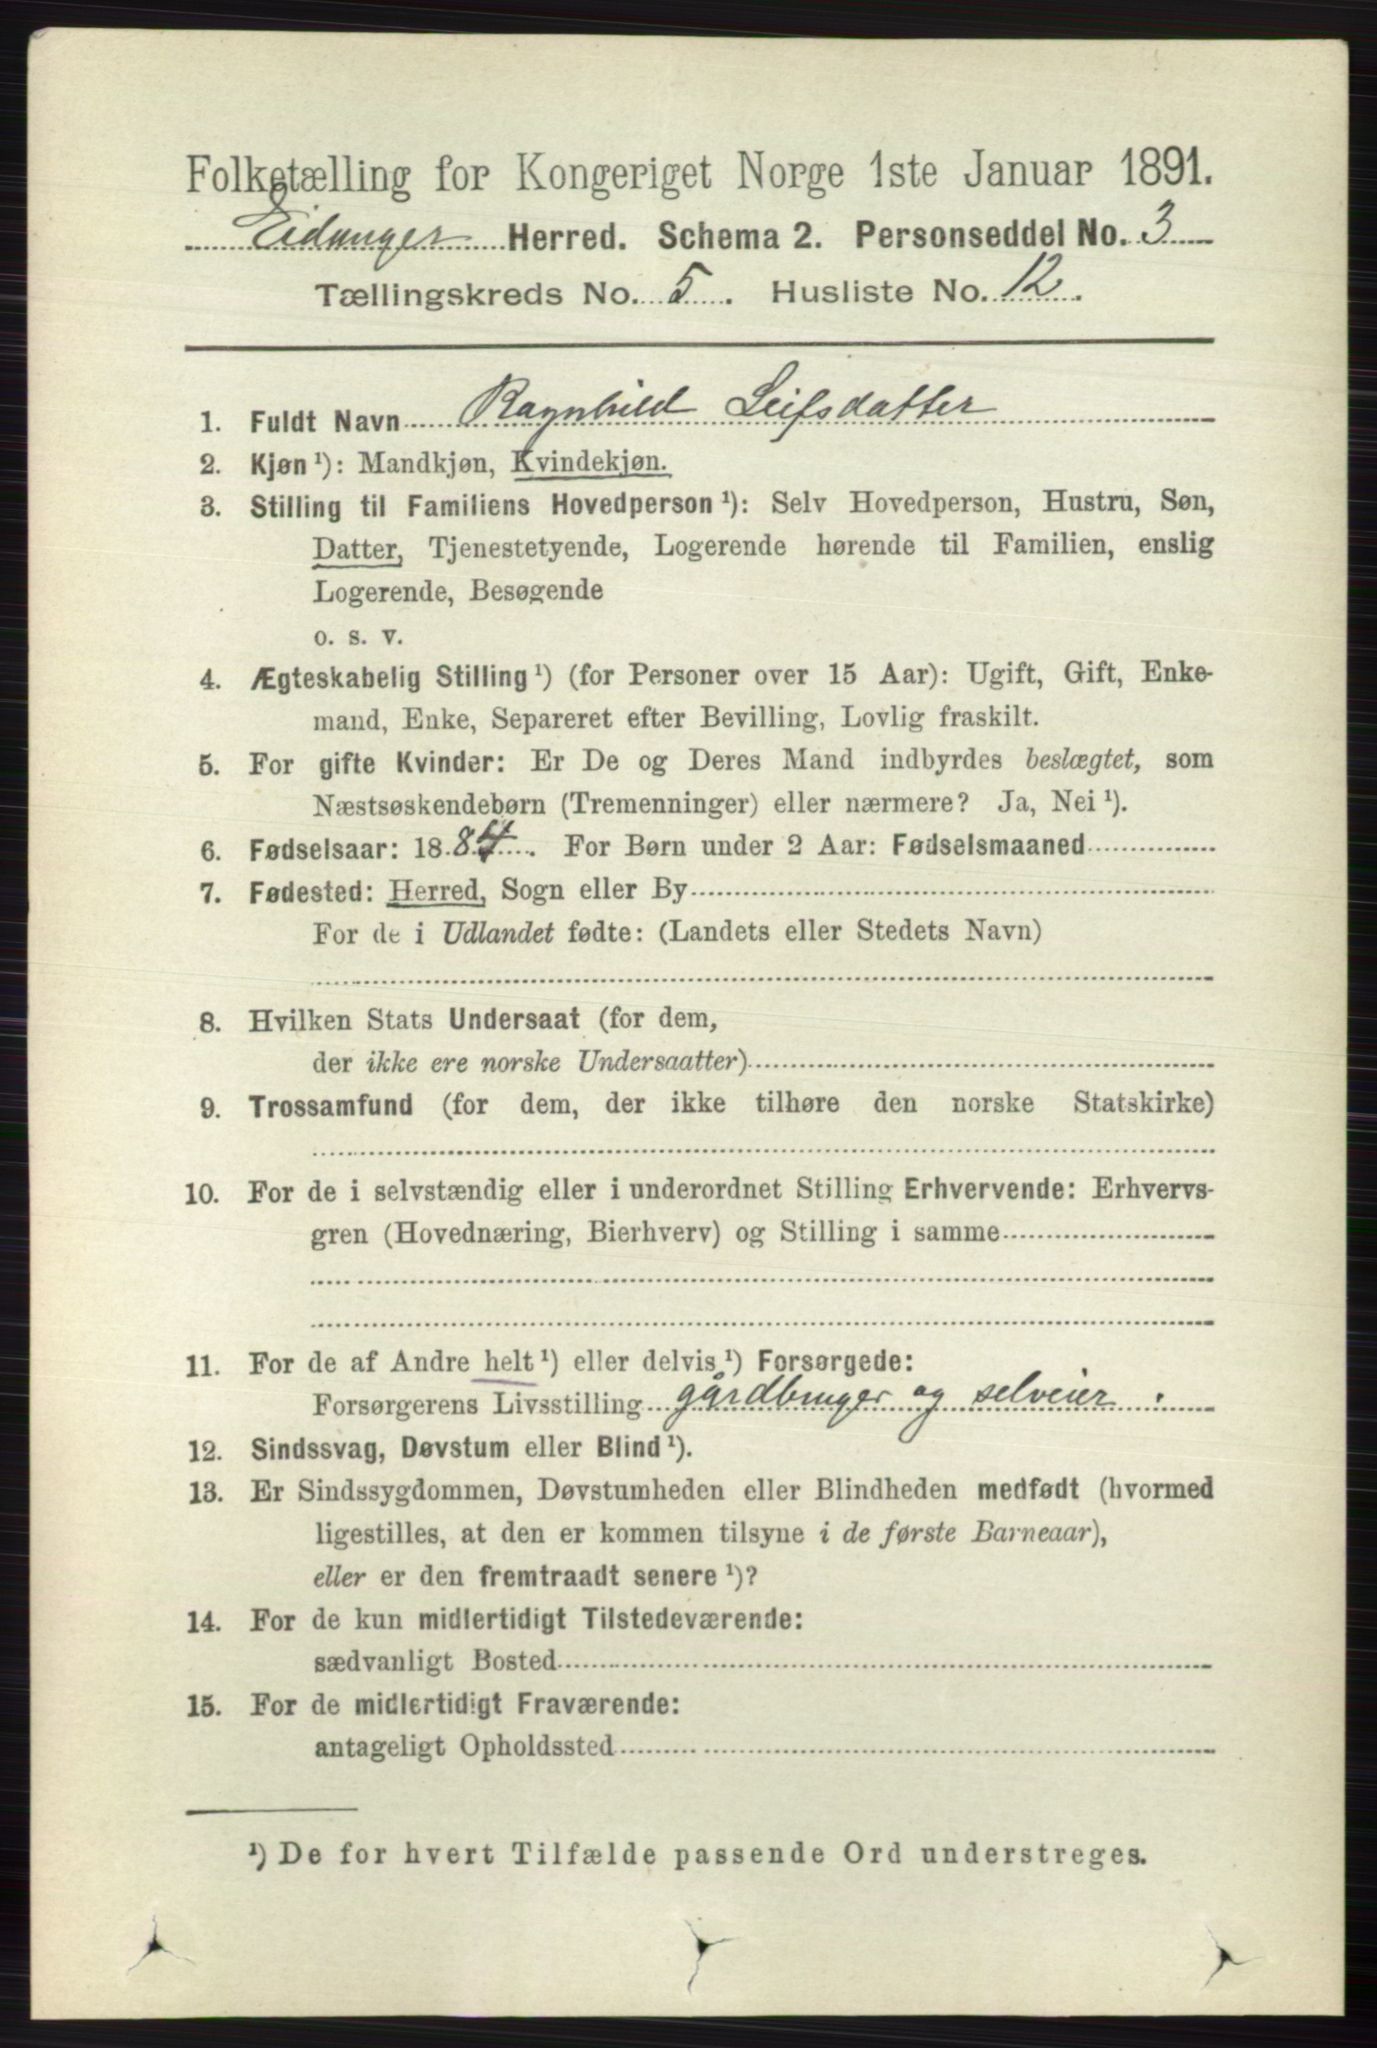 Folketælling for Kongeriget Norge 1ste Januar 1891.
Eidanger Herred. Schema 2. Personseddel No. 3
Tællingskreds No. 5. Husliste No. 12.
1. Fuldt Navn Ragnhild Leifsdatter
2. Kjøn ¹): Mandkjøn, Kvindekjøn.
3. Stilling til Familiens Hovedperson ¹): Selv Hovedperson, Hustru, Søn,
Datter, Tjenestetyende, Logerende hørende til Familien, enslig
Logerende, Besøgende
o. s. v.
4. Ægteskabelig Stilling ¹) (for Personer over 15 Aar): Ugift, Gift, Enke-
mand, Enke, Separeret efter Bevilling, Lovlig fraskilt.
5. For gifte Kvinder: Er De og Deres Mand indbyrdes beslægtet, som
Næstsøskendebørn (Tremenninger) eller nærmere? Ja, Nei ¹).
6. Fødselsaar: 1884. For Børn under 2 Aar: Fødselsmaaned
7. Fødested: Herred, Sogn eller By
For de i Udlandet fødte: (Landets eller Stedets Navn)
8. Hvilken Stats Undersaat (for dem,
der ikke ere norske Undersaatter)
9. Trossamfund (for dem, der ikke tilhøre den norske Statskirke)
10. For de i selvstændig eller i underordnet Stilling Erhvervende: Erhvervs-
gren (Hovednæring, Bierhverv) og Stilling i samme
11. For de af Andre helt ¹) eller delvis ¹) Forsørgede:
Forsørgerens Livsstilling gårdbruger og selveier.
12. Sindssvag, Døvstum eller Blind ¹).
13. Er Sindssygdommen, Døvstumheden eller Blindheden medfødt (hvormed
ligestilles, at den er kommen tilsyne i de første Barneaar),
eller er den fremtraadt senere ¹)?
14. For de kun midlertidigt Tilstedeværende:
sædvanligt Bosted
15. For de midlertidigt Fraværende:
antageligt Opholdssted
¹) De for hvert Tilfælde passende Ord understreges.